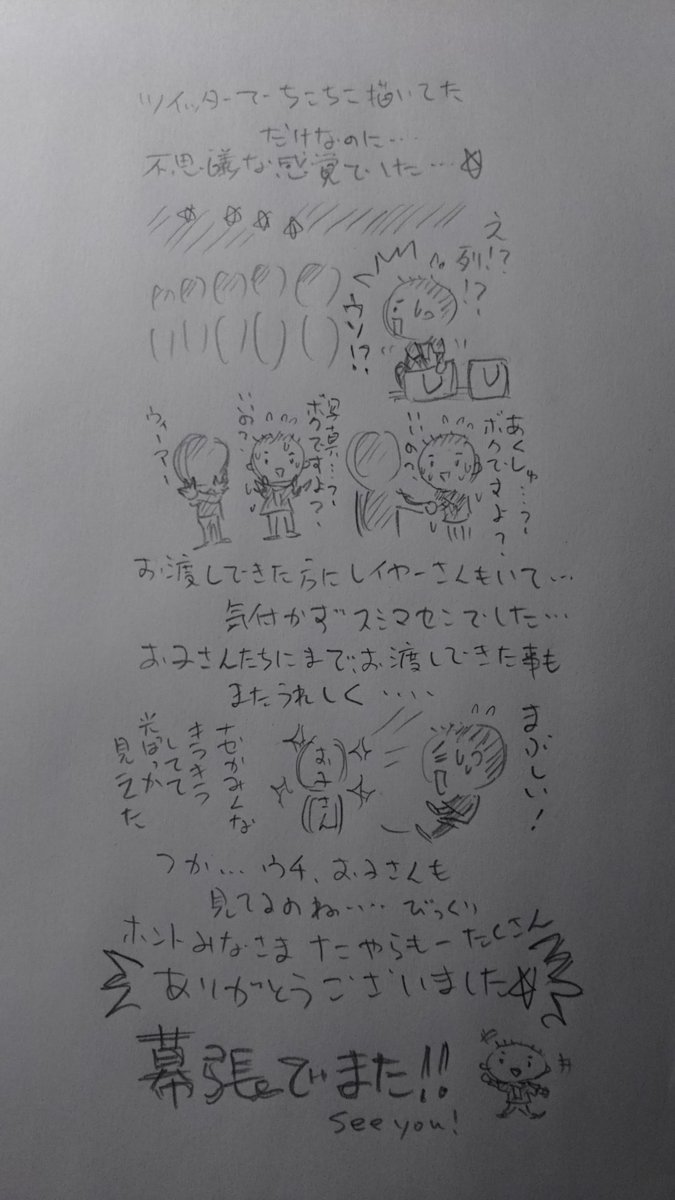 ツイッターでちこちこ描いてた
だけなのに…
不思議な感覚でした…☆
え
列!?
!?
ウソ!?
あくしゅ…?
ボクですよ?
いいの?
写真…?
ボクですよ?
いいの?
ウィーアー
お渡しできた方にレイヤーさんもいて…
気付かずスミマセンでした…
お子さんたちにまでお渡しできた事も
またうれしく‥‥
まぶしい!
お子
さん
なぜかみんな
きらきら
してて
光ばっか
見えた
つか…ウチ、お子さんも
見てるのね…‥びっくり
ホントみなさま なにやらもーたくさん
ありがとうございました☆
幕張でまた!!
see you!